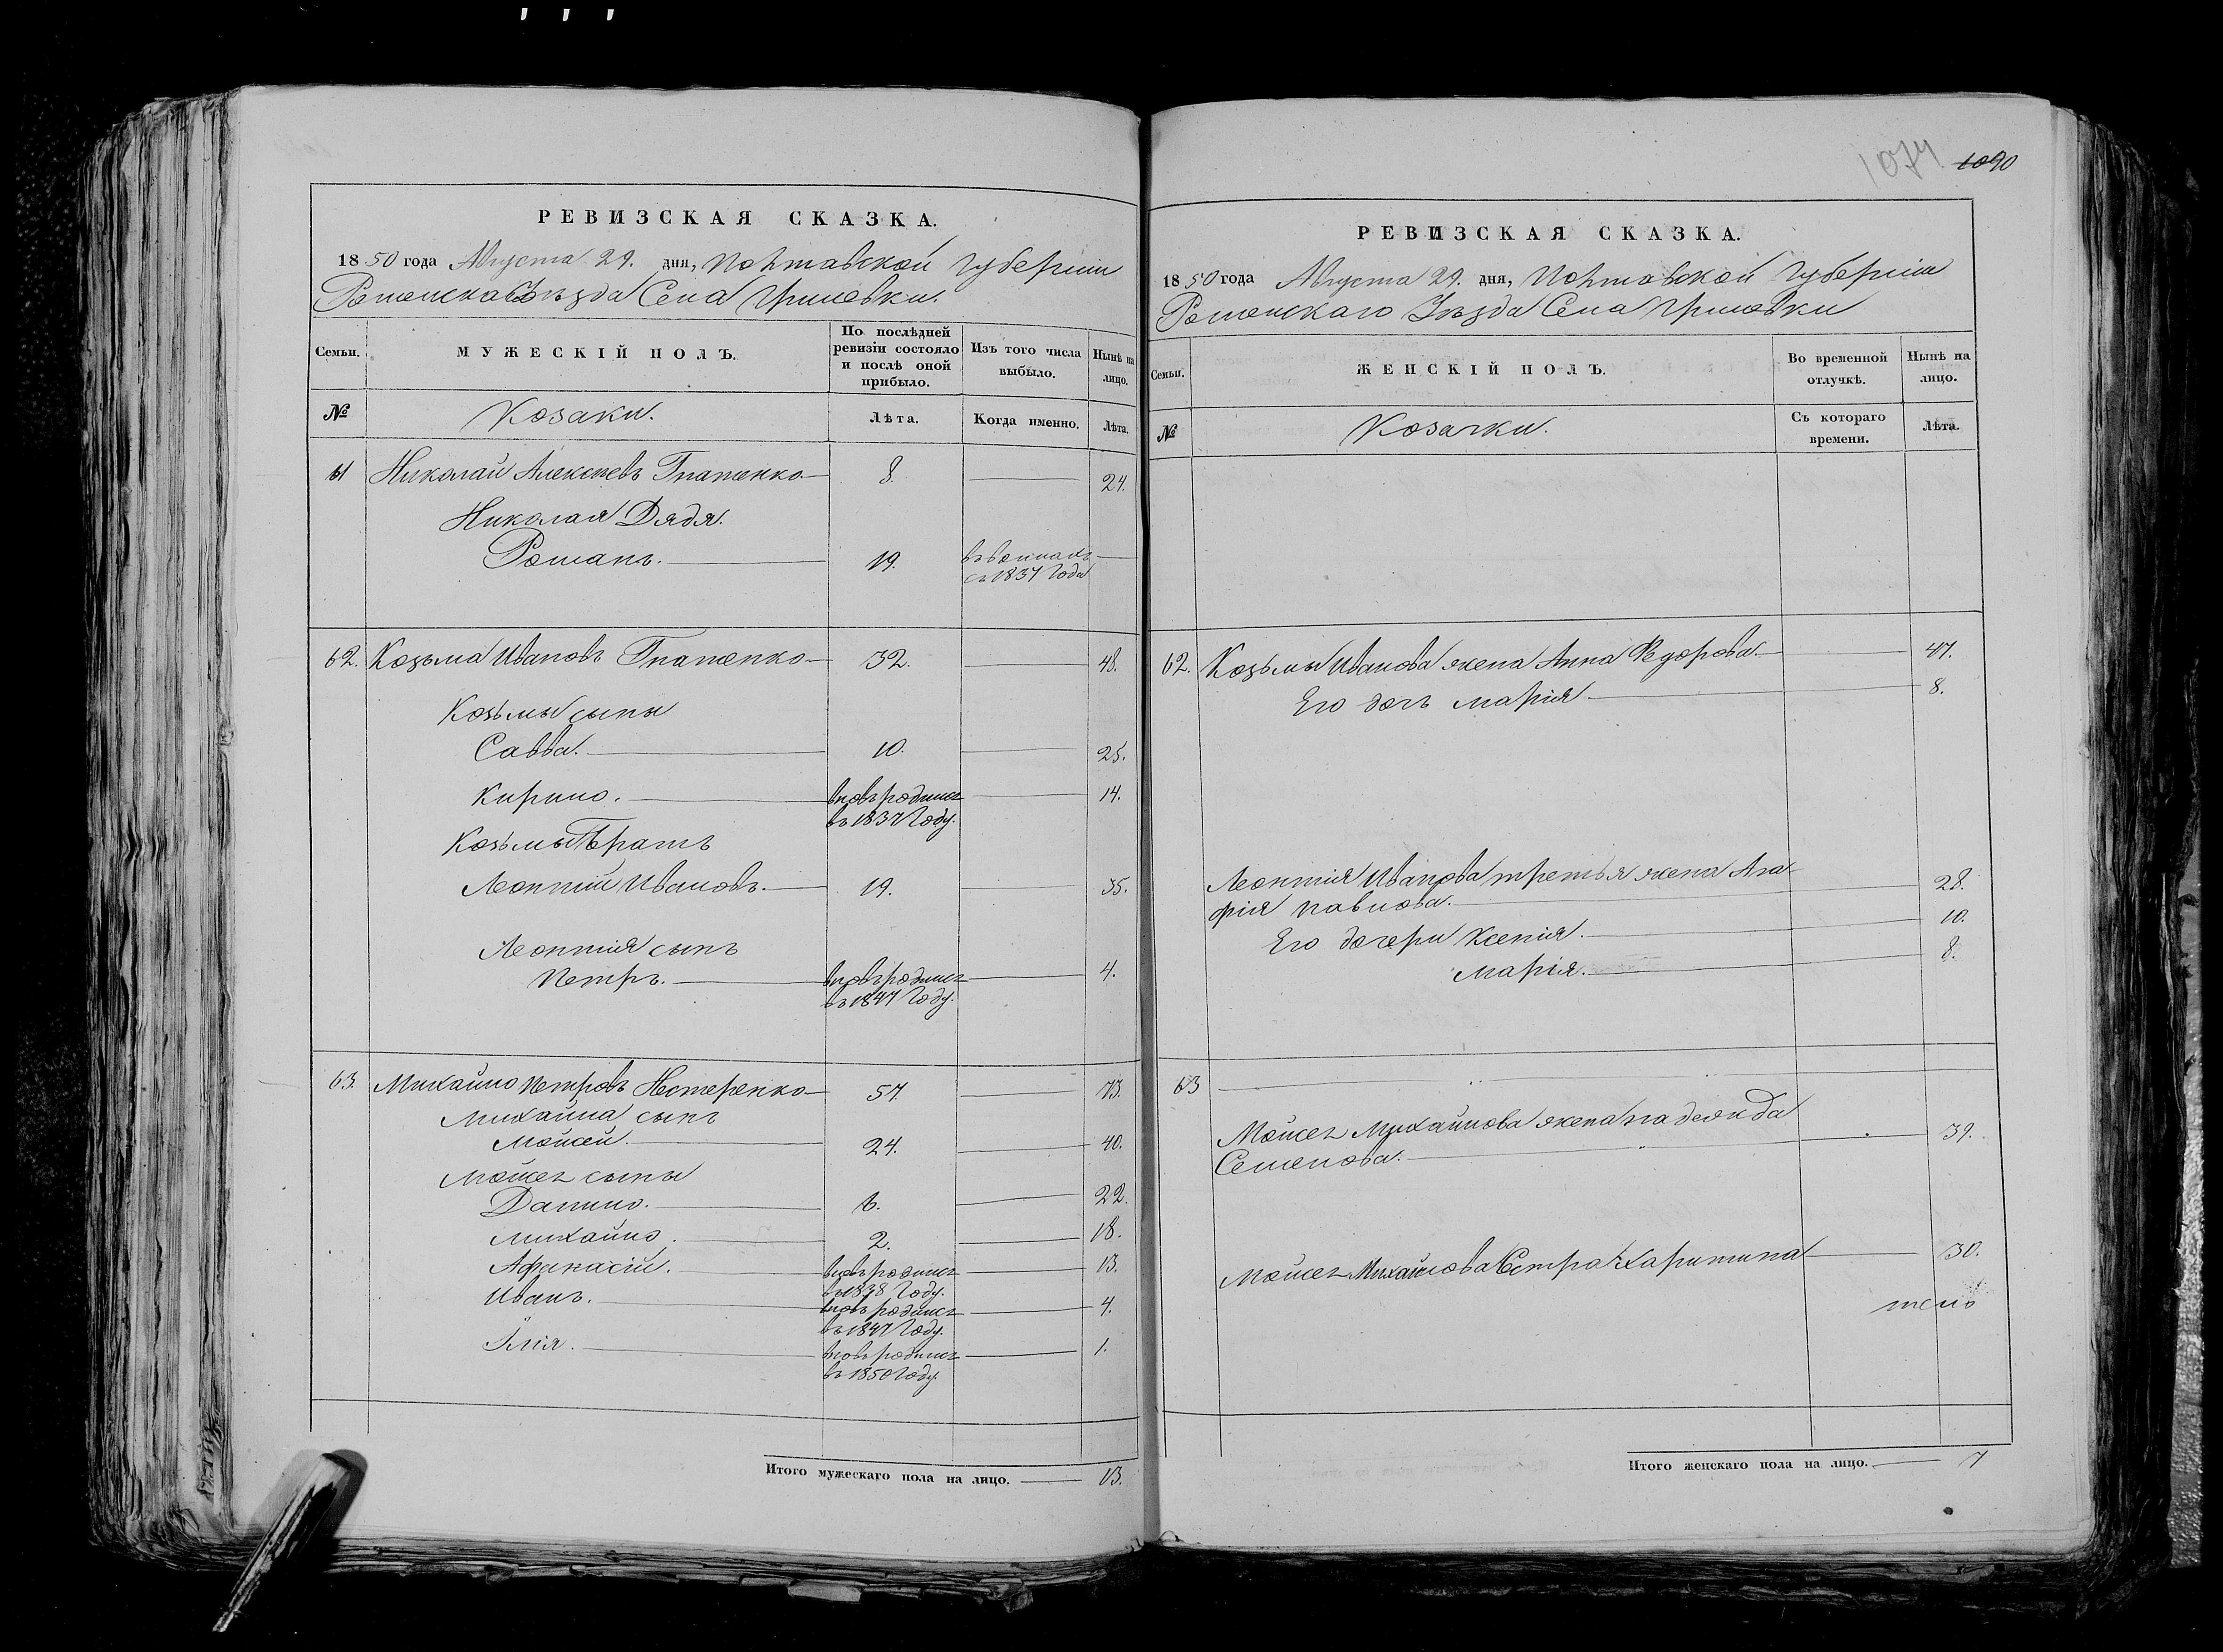 РЕВИЗСКАЯ СКАЗКА.
1850 года Августа 29. дня, Полтавской Губернiи
Роменскаго Уѣзда Села Гриновки.
Семьи.
МУЖЕСКIЙ ПОЛЪ.
По послѣдней ревизiи состояло и послѣ оной прибыло.
Изъ того числа выбыло.
Нынѣ на лицо.
№
Козаки.
Лѣта.
Когда именно.
Лѣта.
61 Николай Алексѣевъ Гнатенко 8. 24.
Николая Дядя.
Романъ. 19.
съ 1837 Года
62. Козьма Ивановъ Гнатенко 32. 48.
Козьмы сыны
Савва. 10. 25.
Кирило. вновь родился 14.
въ 1837 Году.
Козьмы Братъ
Леонтiй Ивановъ. 19. 35.
Леонтiя сынъ
Петръ. вновь родился 4.
въ 1847 Году.
63. Михайло Петровъ Нестеренко 57. 73.
Михайла сынъ
Мойсей. 24. 40.
Мойсея сыны
Данило. 6. 22.
Михайло. 2. 18.
Афанасiй. вновь родился 13.
въ 1838 Году.
Иванъ. вновь родился 4.
въ 1847 Году.
Iлiя. вновь родился 1.
въ 1850 Году.
Итого мужескаго пола на лицо. 13.
1074 1090
РЕВИЗСКАЯ СКАЗКА.
1850 года Августа 29. дня, Полтавской Губернiи
Роменскаго Уѣзда Села Гриновки
Семьи.
ЖЕНСКIЙ ПОЛЪ.
Во временной отлучкѣ.
Нынѣ на лицо.
№
Козачки.
Съ котораго времени.
Лѣта.
62. Козьмы Иванова жена Анна Федорова 47.
Его дочь Марiя 8.
Леонтiя Иванова третья жена Ага-
фiя Павлова. 28.
Его дочери Ксенiя. 10.
Марiя. 8.
63
Мойсея Михайлова жена Надежда
Семенова. 39.
Мойсея Михайлова Сестра Харитина 30.
Итого женскаго пола на лицо. 7